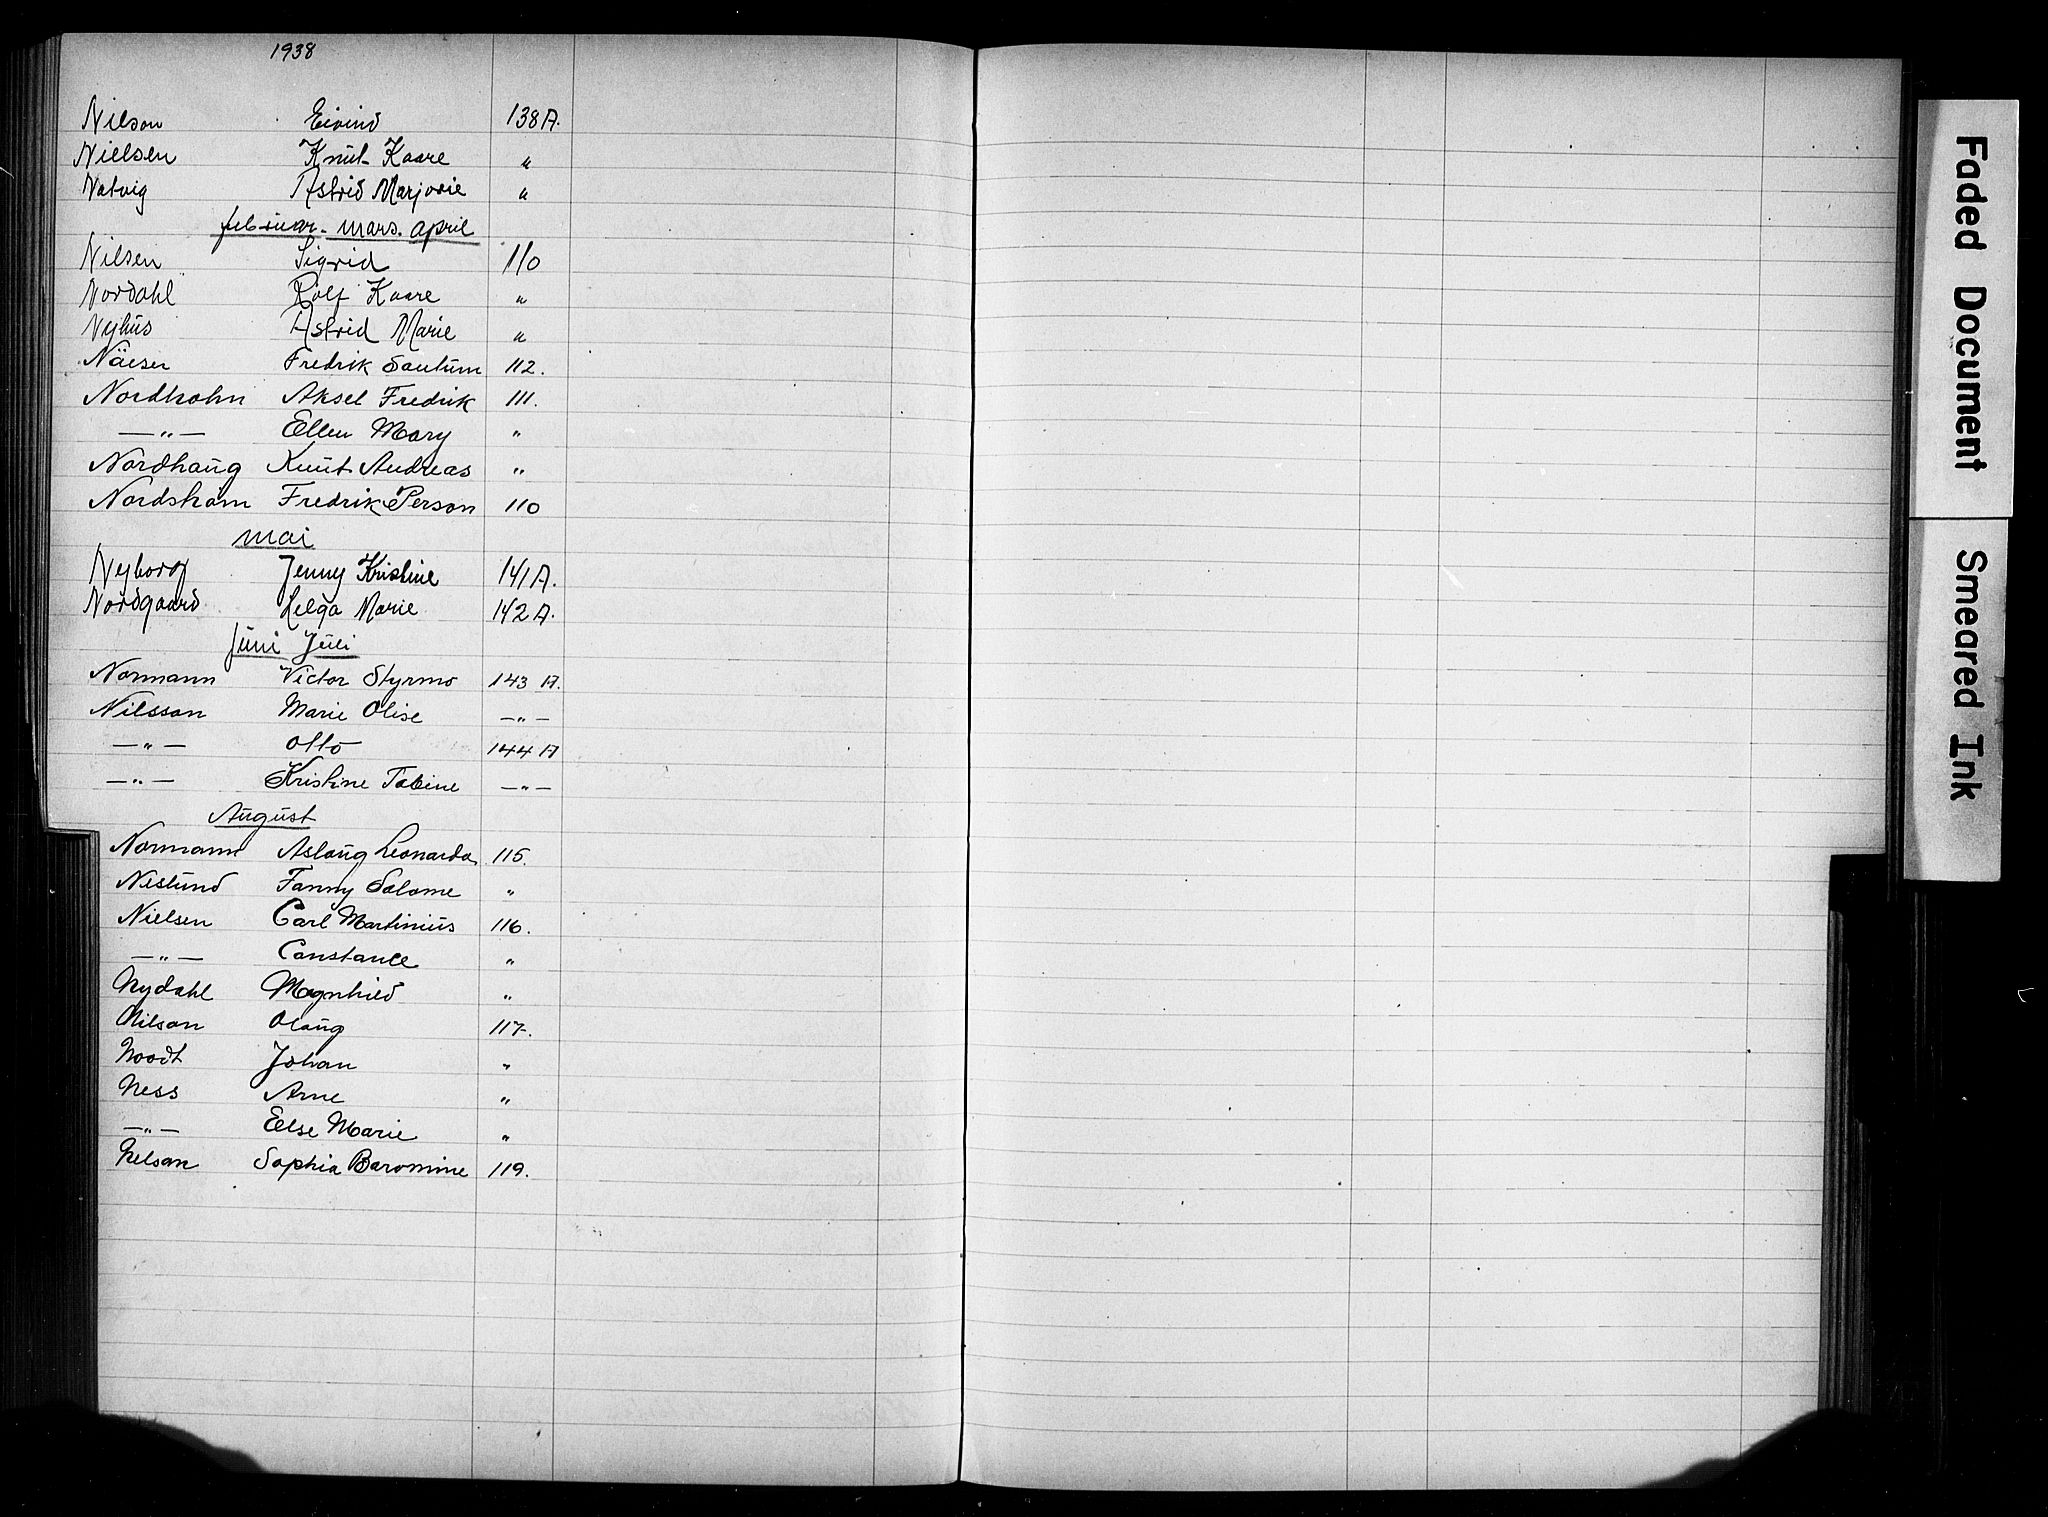 1938
Nilson Eivind 138 A.
Nielsen Knut Kaare "
Natvig Astrid Marjorie "
februar - mars. april
Nilsen Sigrid 110
Nordahl Rolf Kaare "
Nyhus Astrid Marie "
Näeser Fredrik 112.
Aksel Fredrik 111.
— " — Ellen Mary "
Nordhaug Knut Andreas "
Fredrik Person 110
mai
Nyborg Jenny Kristine 141 A.
Nordgaard Helga Marie 142 A.
Juni Juli
Normann Victor Styrmo 143 A.
Nilsson Marie Olise — " —
— " — Otto 144 A
— " — Kristine Tobine — " —
August
Normann Aslaug Leonarda 115.
Neslund Fanny Salome "
Nielsen Carl Martinius 116.
— " — Constance "
Nydahl Magnhild "
Nilson Olaug 117.
Noodt Johan "
Ness Arne "
— " — Else Marie "
Nelson Sophia Baromine 119.
Faded Document
Smeared Ink